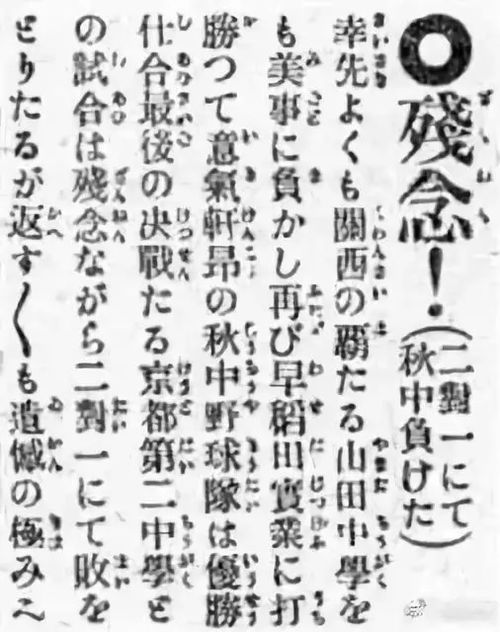 ◎殘念！（二對一にて
秋中負けた）
幸先よくも關西の覇たる山田中學を
も美事に負かし再び早稻田實業に打
勝つて意氣軒昂の秋中野球隊は優勝
仕合最後の決戰たる京都第二中學と
の試合は殘念ながら二對一にて敗を
とりたるが返す〱も遺憾の極みへ